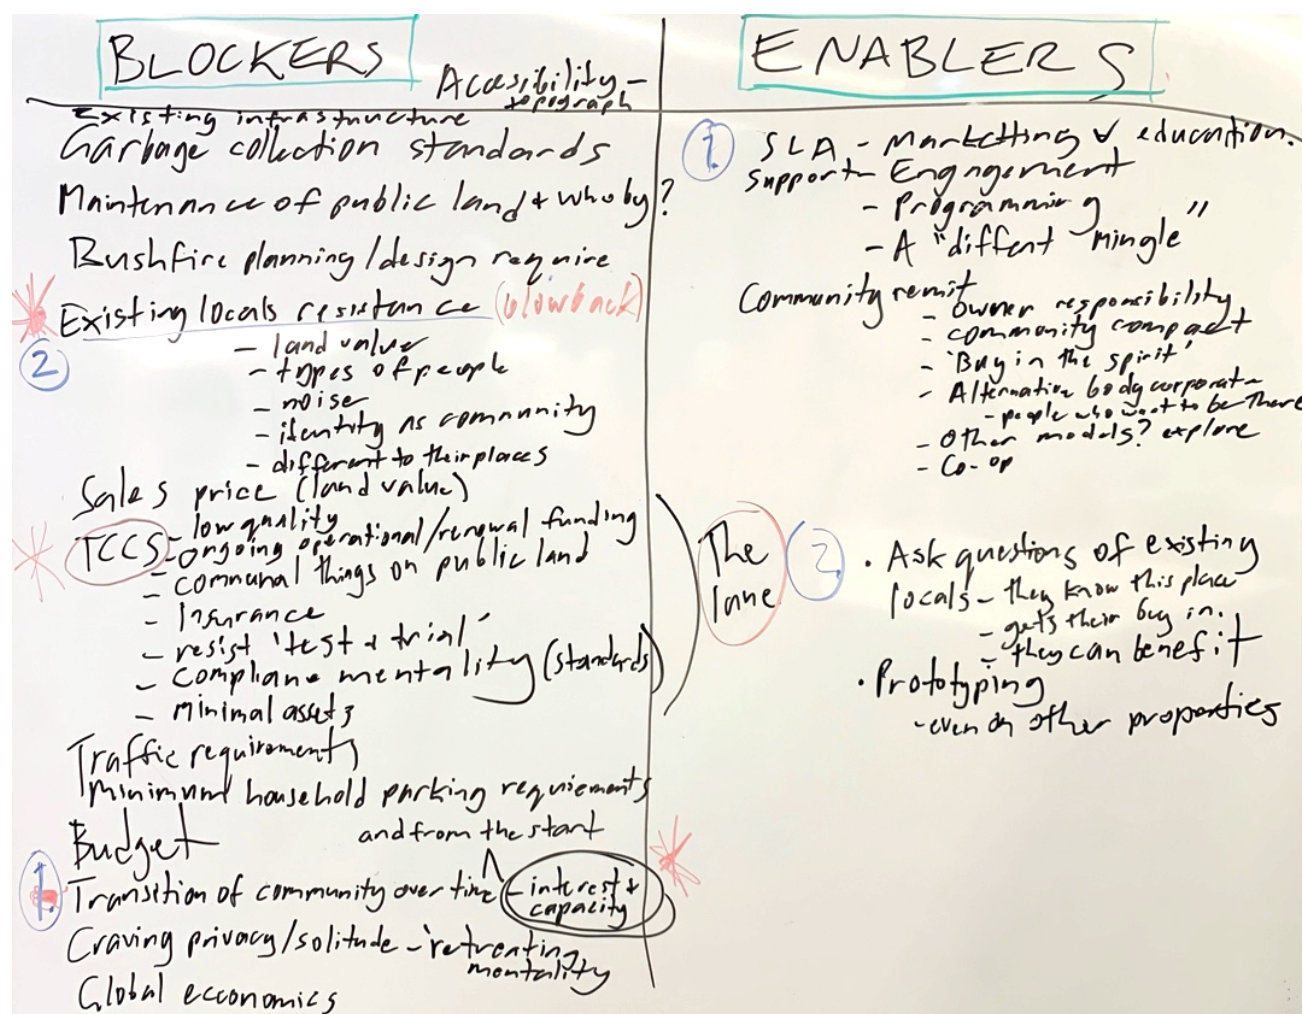 BLOCKERS
Acessibility - topograph
Existing infrastructure
Garbage collection standards
Maintennance of public land & who by?
Bushfire planning/design require
Existing locals resistance (blowback)
2
- land value
- types of people
- noise
- identity as community
- different to their places
Sales price (land value)
TCCS - low quality
- ongoing operational/renewal funding
- communal things on public land
- Insurance
- resist 'test & trial'
- compliane mentality (standards)
- minimal assets
The lane
Traffic requirements
Minimum household parking requiements
Budget
and from the start
1. Transition of community over time - interest & capacity
Craving privacy/solitude - 'retreating mentality
Global ecconomics
ENABLERS
1. SLA - Marketting & education.
support - Engagement
- Programming
- A "diffent mingle"
Community remit
- owner responsibility
- community compact
- 'Buy in the spirit'
- Alternative body corporate
- people who want to be there
- Other models? explore
- Co-op
2. • Ask questions of existing
locals - they know this place
- gets their buy in.
- they can benefit
• Prototyping
- even on other properties